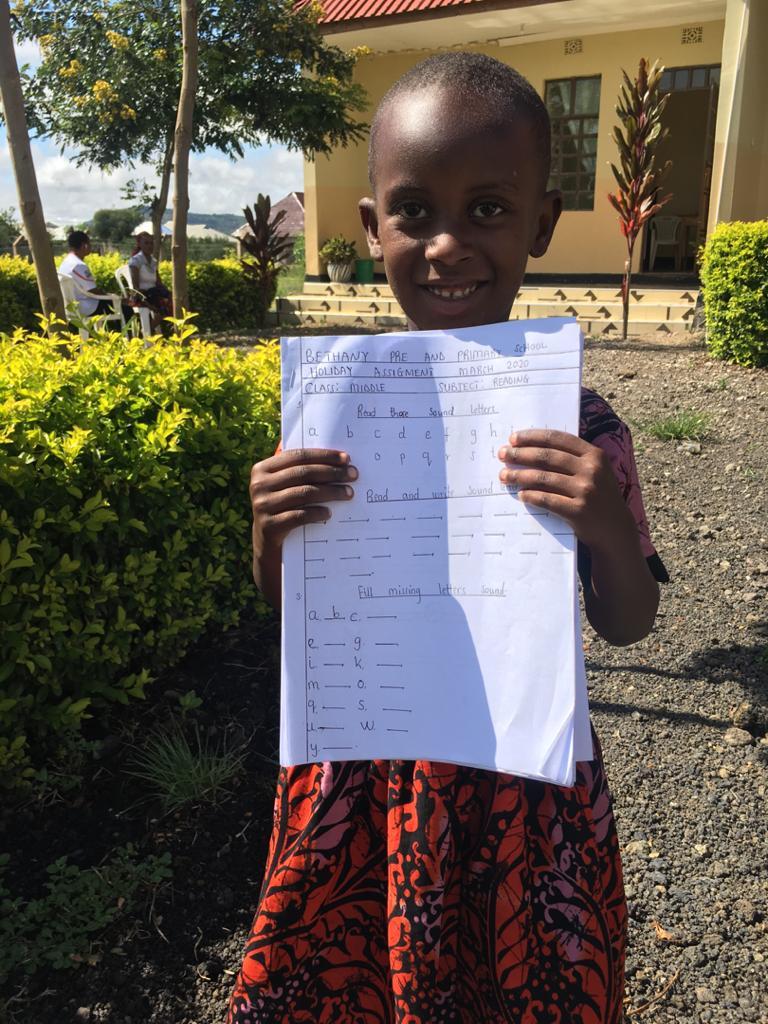 BETHANY PRE AND PRIMARY SCHOOL
HOLIDAY ASSIGMENT MARCH 2020
CLASS: MIDDLE SUBJECT: READING
Read those sound letters
a b c d e f g h i
o p q r s t
Read and write sound
3. Fill missing letters sound
a. b c.
e. g.
i. k.
m o.
q. s.
u. w.
y.